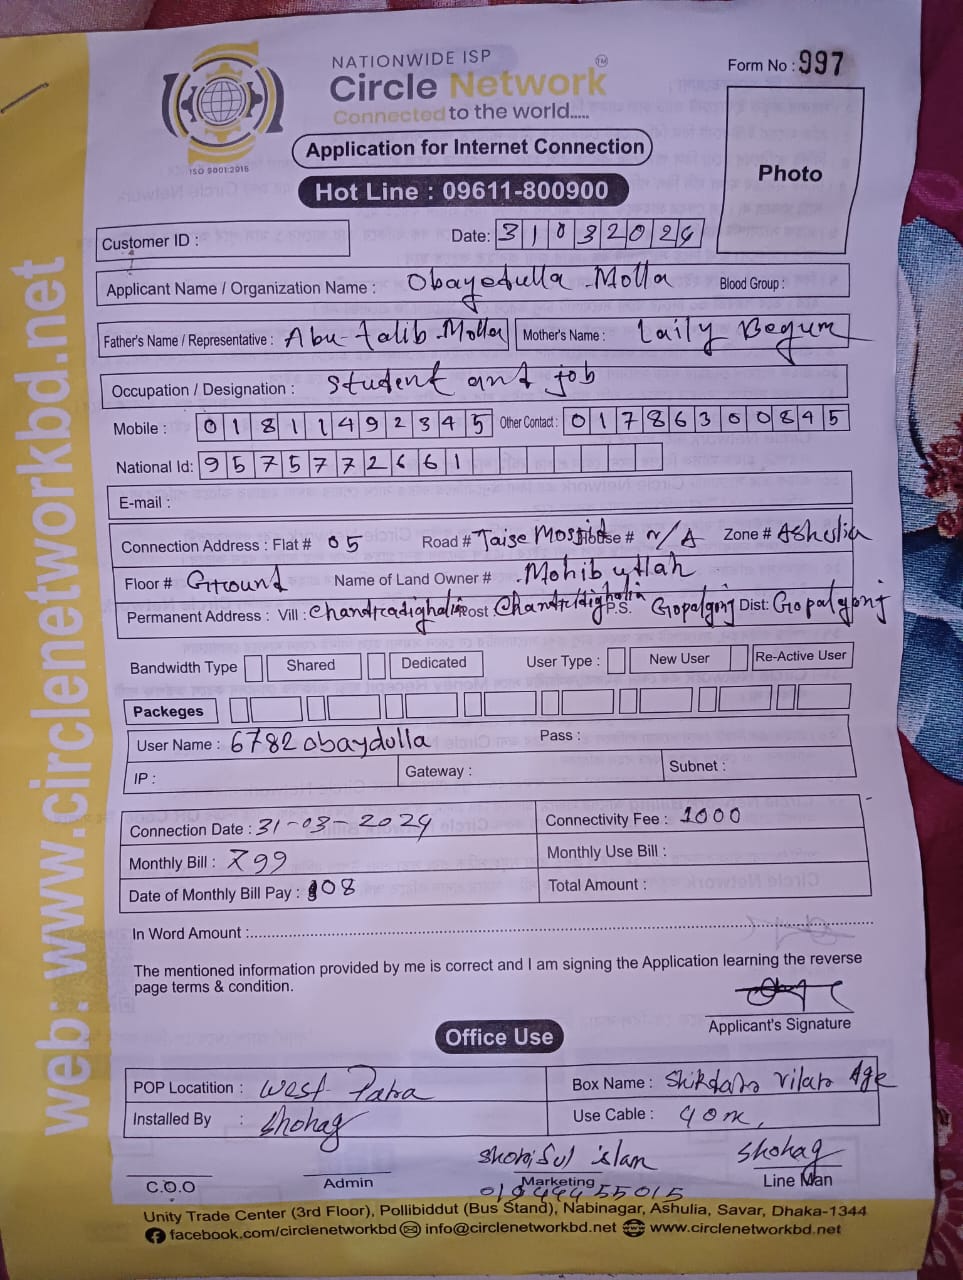 NATIONWIDE ISP
Circle Network TM
Connected to the world.....
ISO 9001:2015
Form No : 997
Application for Internet Connection
Hot Line : 09611-800900
Photo
Customer ID :
Date: 31032024
Applicant Name / Organization Name : Obayedulla Molla Blood Group :
Father's Name / Representative : Abu-talib-Molla Mother's Name : Laily Begum
Occupation / Designation : Student and job
Mobile : 01811492345 Other Contact : 01786300845
National Id: 9575772661
E-mail :
Connection Address : Flat # 05 Road # Taise Mosjid House # N/A Zone # Ashulia
Floor # Ground Name of Land Owner # Mohib ullah
Permanent Address : Vill : Chandradighalia Post : Chandradighalia P.S. Gopalgonj Dist: Gopalgonj
Bandwidth Type Shared Dedicated User Type : New User Re-Active User
Packeges
User Name : 6782obaydulla Pass :
IP : Gateway : Subnet :
Connection Date : 31-03-2024 Connectivity Fee : 1000
Monthly Bill : 799 Monthly Use Bill :
Date of Monthly Bill Pay : 08 Total Amount :
In Word Amount :
The mentioned information provided by me is correct and I am signing the Application learning the reverse
page terms & condition.
Applicant's Signature
Office Use
POP Locatition : West Para Box Name : Shikdar
Installed By : Shohag Use Cable : 40m,
islam Shohag
C.O.O Admin Marketing Line Man
Unity Trade Center (3rd Floor), Pollibiddut (Bus Stand), Nabinagar, Ashulia, Savar, Dhaka-1344
facebook.com/circlenetworkbd info@circlenetworkbd.net www.circlenetworkbd.net
web: www.circlenetworkbd.net